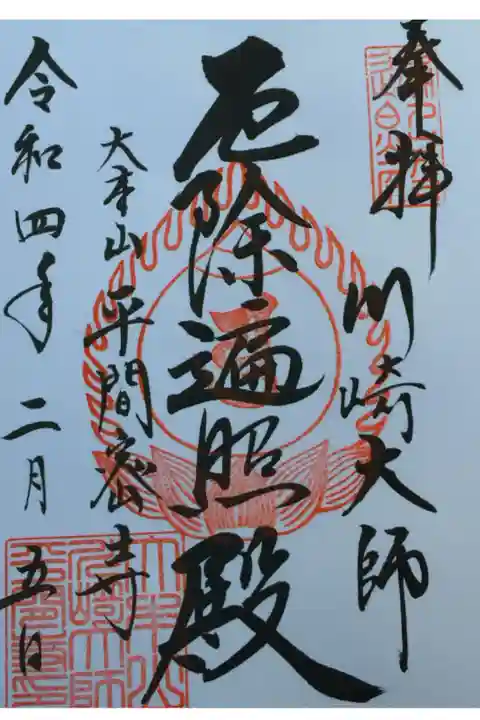 奉拝
川崎大師
厄除遍照殿
大本山平間密寺
令和四年二月五日